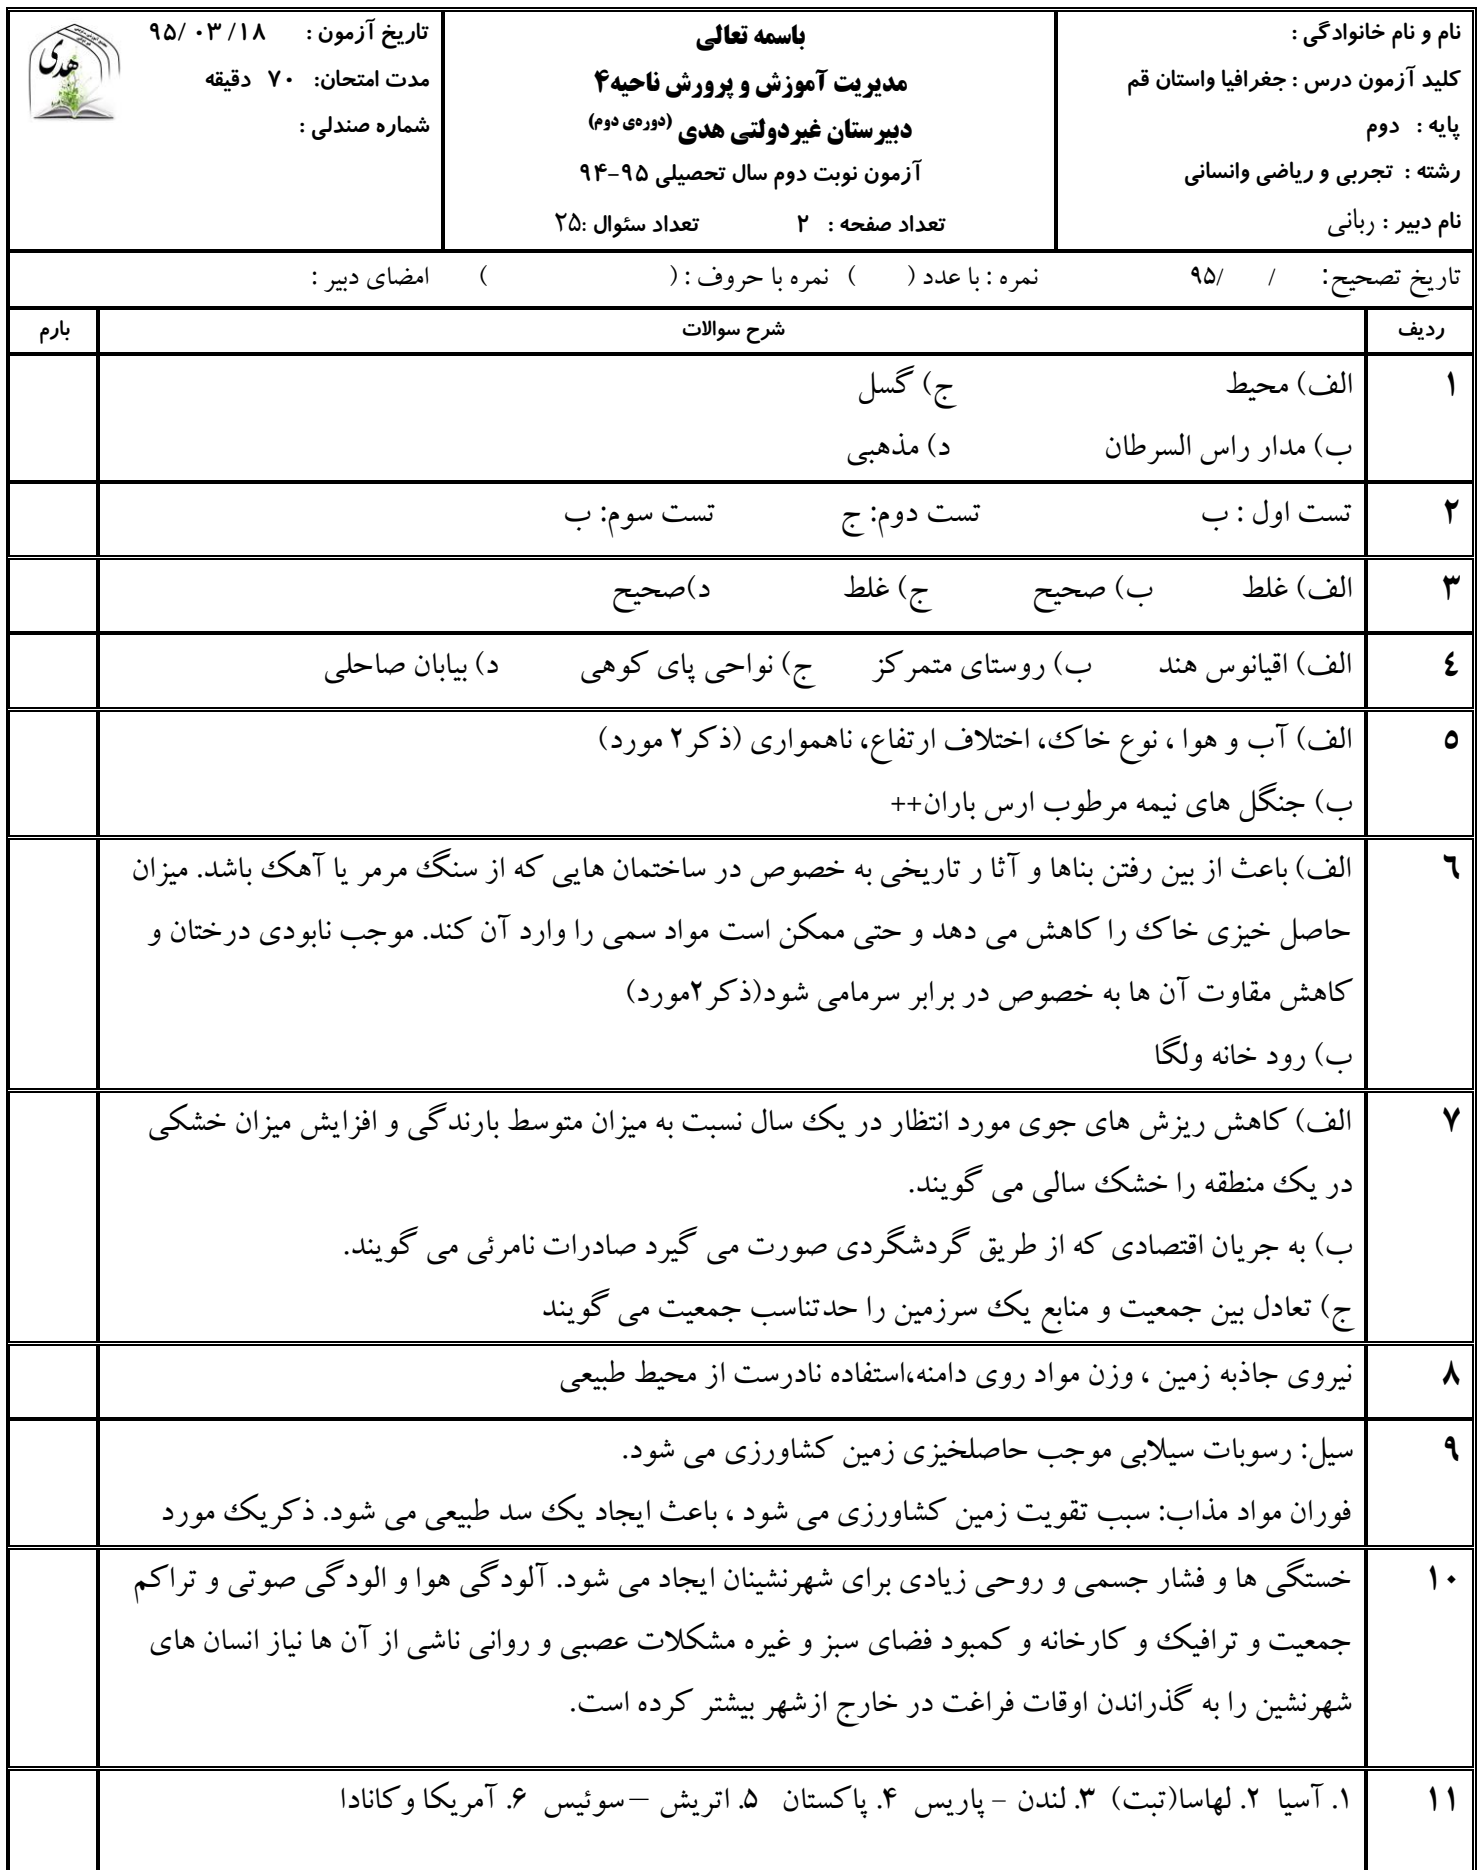 نام و نام خانوادگی :
کلید آزمون درس : جغرافیا واستان قم
پایه : دوم
رشته : تجربی و ریاضی وانسانی
نام دبیر : ربانی
باسمه تعالی
مدیریت آموزش و پرورش ناحیه۴
دبیرستان غیردولتی هدی (دوره‌ی دوم)
آزمون نوبت دوم سال تحصیلی ۹۵-۹۴
تعداد صفحه : ۲ تعداد سئوال :۲۵
تاریخ آزمون : ۹۵/۰۳/۱۸
مدت امتحان: ۷۰ دقیقه
شماره صندلی :
هدی
تاریخ تصحیح: / /۹۵ نمره : با عدد ( ) نمره با حروف : ( ) امضای دبیر :
ردیف شرح سوالات بارم
۱ الف) محیط ج) گسل
ب) مدار راس السرطان د) مذهبی
۲ تست اول : ب تست دوم: ج تست سوم: ب
۳ الف) غلط ب) صحیح ج) غلط د)صحیح
٤ الف) اقیانوس هند ب) روستای متمرکز ج) نواحی پای کوهی د) بیابان صاحلی
٥ الف) آب و هوا ، نوع خاک، اختلاف ارتفاع، ناهمواری (ذکر۲ مورد)
ب) جنگل های نیمه مرطوب ارس باران++
٦ الف) باعث از بین رفتن بناها و آثا ر تاریخی به خصوص در ساختمان هایی که از سنگ مرمر یا آهک باشد. میزان
حاصل خیزی خاک را کاهش می دهد و حتی ممکن است مواد سمی را وارد آن کند. موجب نابودی درختان و
کاهش مقاوت آن ها به خصوص در برابر سرمامی شود(ذکر۲مورد)
ب) رود خانه ولگا
۷ الف) کاهش ریزش های جوی مورد انتظار در یک سال نسبت به میزان متوسط بارندگی و افزایش میزان خشکی
در یک منطقه را خشک سالی می گویند.
ب) به جریان اقتصادی که از طریق گردشگردی صورت می گیرد صادرات نامرئی می گویند.
ج) تعادل بین جمعیت و منابع یک سرزمین را حدتناسب جمعیت می گویند
۸ نیروی جاذبه زمین ، وزن مواد روی دامنه،استفاده نادرست از محیط طبیعی
۹ سیل: رسوبات سیلابی موجب حاصلخیزی زمین کشاورزی می شود.
فوران مواد مذاب: سبب تقویت زمین کشاورزی می شود ، باعث ایجاد یک سد طبیعی می شود. ذکریک مورد
۱۰ خستگی ها و فشار جسمی و روحی زیادی برای شهرنشینان ایجاد می شود. آلودگی هوا و الودگی صوتی و تراکم
جمعیت و ترافیک و کارخانه و کمبود فضای سبز و غیره مشکلات عصبی و روانی ناشی از آن ها نیاز انسان های
شهرنشین را به گذراندن اوقات فراغت در خارج ازشهر بیشتر کرده است.
۱۱ ۱. آسیا ۲. لهاسا(تبت) ۳. لندن – پاریس ۴. پاکستان ۵. اتریش –سوئیس ۶. آمریکا وکانادا